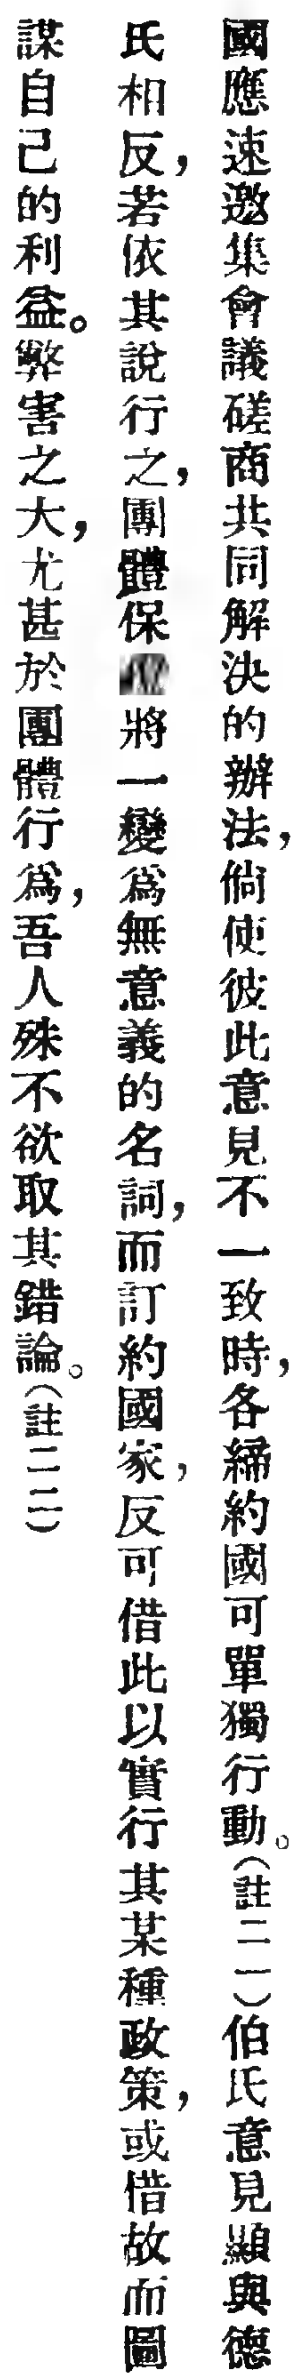 國應速邀集會議磋商共同解決的辦法，倘使彼此意見不一致時，各締約國可單獨行動。（註二一）伯氏意見顯與德
氏相反，若依其說行之，團體保將一變爲無意義的名詞，而訂約國家，反可借此以實行其某種政策，或借故而圖
謀自己的利益。弊害之大，尤甚於團體行爲，吾人殊不欲取其錯論。（註二二）